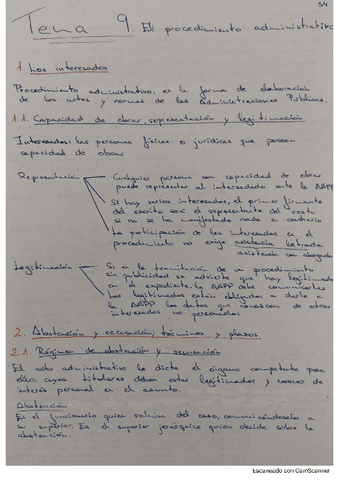 34
Tema 9. El procedimiento administrativo
1. Los interesados
Procedimiento administrativo: es la forma de elaboración
de los actos y normas de las Administraciones Públicas.
1.1. Capacidad de obrar, representación y legitimación
Interesados: las personas físicas o jurídicas que poseen
capacidad de obrar
Representación
Cualquier persona con capacidad de obrar
puede representar al interesado ante la AAPP
Si hay varios interesados, el primer firmante
del escrito será el representante del resto
si no se ha manifestado nada a contrario
La participación de los interesados en el
procedimiento no exige asistencia letrada
asistencia con abogado
Legitimación
Si en la tramitación de un procedimiento
sin publicidad se advierte que hay legitimados
en el expediente, la AAPP debe comunicarles
Los legitimados están obligados a darle a
la AAPP los datos que conozcan de otros
interesados no personados
2. Abstención y recusación, términos y plazos
2.1. Régimen de abstención y recusación
El acto administrativo lo dicta el órgano competente para
ello, cuyos titulares deben estar legitimados y carecer de
interés personal en el asunto.
Abstención
Es el funcionario quien se inhibe del caso, comunicándoselo a
su superior. Es el superior jerárquico quien decide sobre la
abstención.
Escaneado con CamScanner